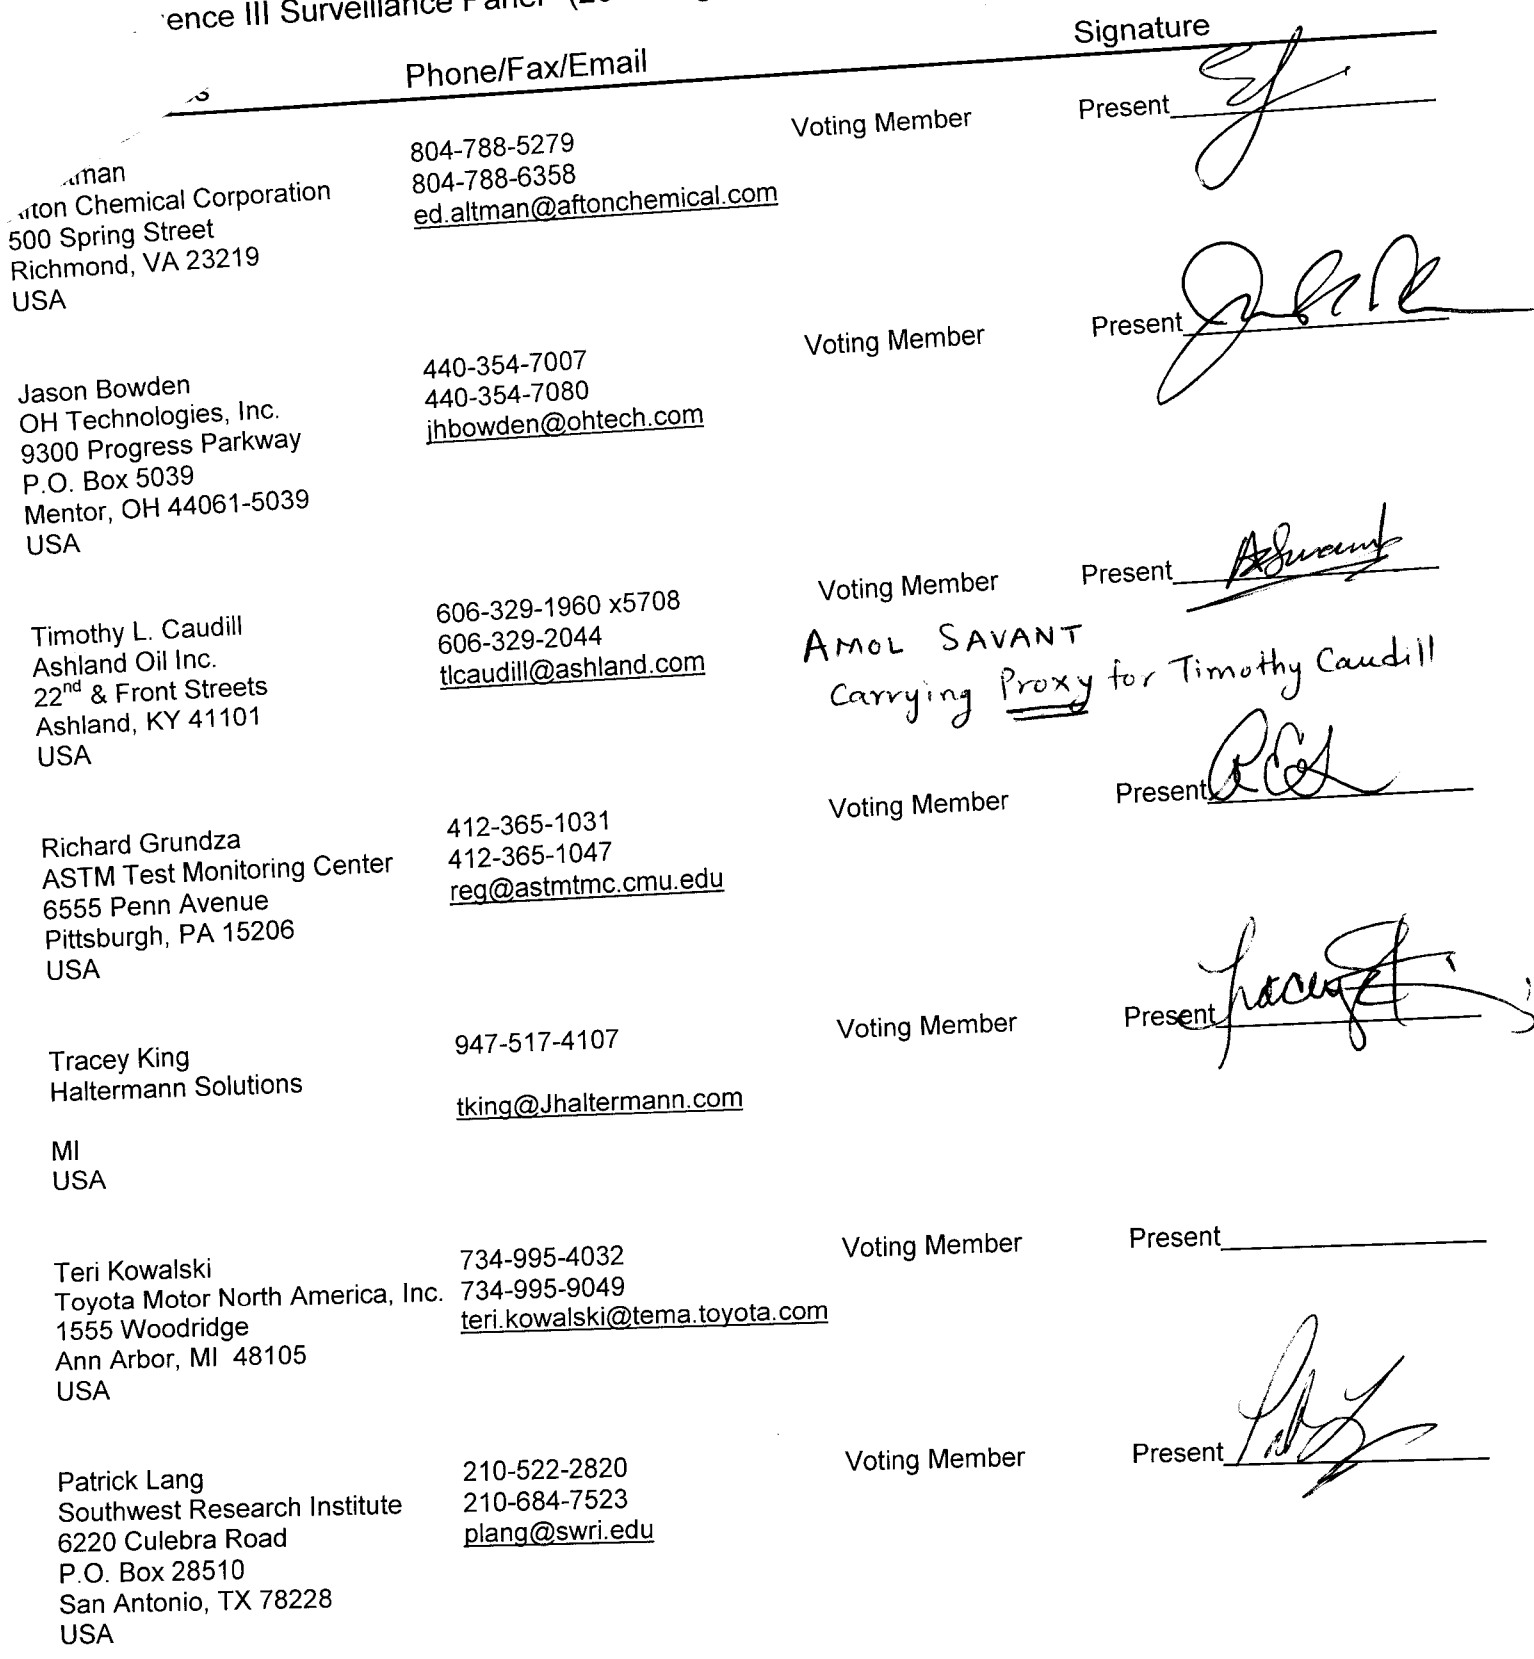 III Surveillance
Phone/Fax/Email
Signature
Chemical Corporation
500 Spring Street
Richmond, VA 23219
USA
804-788-5279
804-788-6358
ed.altman@aftonchemical.com
Voting Member
Present
Jason Bowden
OH Technologies, Inc.
9300 Progress Parkway
P.O. Box 5039
Mentor, OH 44061-5039
USA
440-354-7007
440-354-7080
jhbowden@ohtech.com
Voting Member
Present
Timothy L. Caudill
Ashland Oil Inc.
22nd & Front Streets
Ashland, KY 41101
USA
606-329-1960 x5708
606-329-2044
tlcaudill@ashland.com
Voting Member
Present
AMOL SAVANT
Carrying Proxy for Timothy Caudill
Richard Grundza
ASTM Test Monitoring Center
6555 Penn Avenue
Pittsburgh, PA 15206
USA
412-365-1031
412-365-1047
reg@astmtmc.cmu.edu
Voting Member
Present
Tracey King
Haltermann Solutions
MI
USA
947-517-4107
tking@Jhaltermann.com
Voting Member
Present
Tracey
Teri Kowalski
Toyota Motor North America, Inc.
1555 Woodridge
Ann Arbor, MI 48105
USA
734-995-4032
734-995-9049
teri.kowalski@tema.toyota.com
Voting Member
Present
Patrick Lang
Southwest Research Institute
6220 Culebra Road
P.O. Box 28510
San Antonio, TX 78228
USA
210-522-2820
210-684-7523
plang@swri.edu
Voting Member
Present